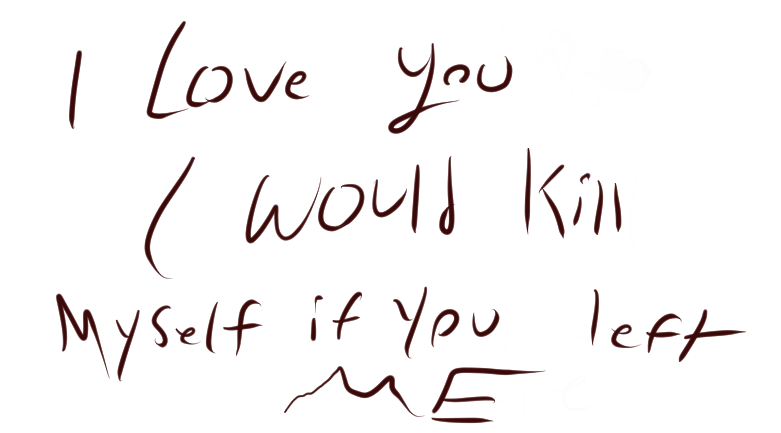 I Love you
I would kill
Myself if you left
ME